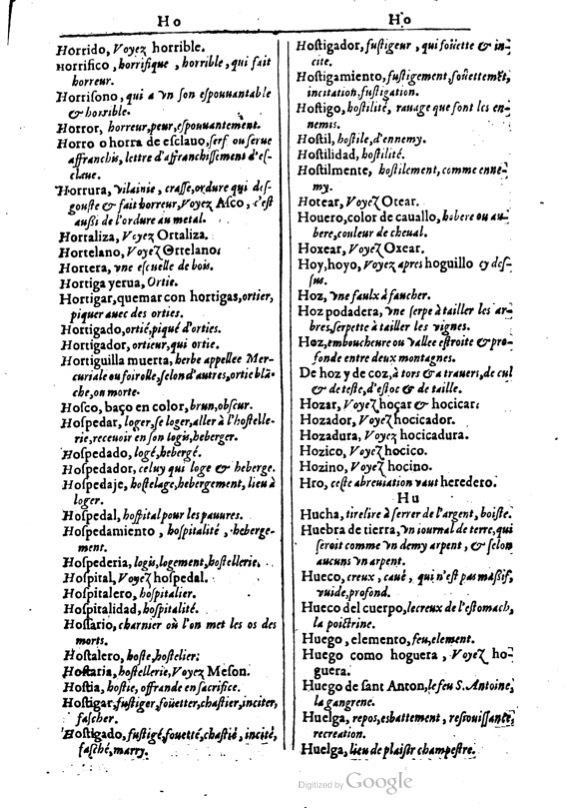 Ho
Horrido, Voyez horrible.
Horrifico, horrifique, horrible, qui fait
horreur.
Horrisono, qui a vn son espouuantable
& horrible.
Horror, horreur, peur, espouuantement.
Horro o horra de esclauo, serf ou serue
affranchis, lettre d'affranchissement d'es-
claue.
Horrura, vilainie, crasse, ordure qui des-
gouste & fait horreur, Voyez Asco, c'est
aussi de l'ordure au metal.
Hortaliza, Voyez Ortaliza.
Hortelano, Voyez Ortelano.
Hortera, vne escuelle de bois.
Hortiga yerua, Ortie.
Hortigar, quemar con hortigas, ortier,
piquer auec des orties.
Hortigado, ortié, piqué d'orties.
Hortigador, ortieur, qui ortie.
Hortiguilla muerta, herbe appellee Mer-
curiale ou foirolle, selon d'autres, ortie blā-
che, on morte.
Hosco, baço en color, brun, obscur.
Hospedar, loger, se loger, aller à l'hostelle-
rie, receuoir en son logis, heberger.
Hospedado, logé, hebergé.
Hospedador, celuy qui loge & heberge.
Hospedaje, hostelage, hebergement, lieu à
loger.
Hospedal, hospital pour les pauures.
Hospedamiento, hospitalité, heberge-
ment.
Hospederia, logis, logement, hostellerie.
Hospital, Voyez hospedal.
Hospitalero, hospitalier.
Hospitalidad, hospitalité.
Hossario, charnier où l'on met les os des
morts.
Hostalero, hoste, hostelier.
Hostaria, hostellerie, Voyez Meson.
Hostia, hostie, offrande en sacrifice.
Hostigar, fustiger, foüetter, chastier, inciter,
fascher.
Hostigado, fustigé, fouetté, chastié, incité,
fasché, marry.
Ho
Hostigador, fustigeur, qui foüette & in-
cite.
Hostigamiento, fustigement, foüettemēt,
incitation, fustigation.
Hostigo, hostilité, rauage que font les en-
nemis.
Hostil, hostile, d'ennemy.
Hostilidad, hostilité.
Hostilmente, hostilement, comme enne-
my.
Hotear, Voyez Otear.
Houero, color de cauallo, hobere ou au-
bere, couleur de cheual.
Hoxear, Voyez Oxear.
Hoy, hoyo, Voyez apres hoguillo cy des-
sus.
Hoz, vne faulx à faucher.
Hoz podadera, vne serpe à tailler les ar-
bres, serpette à tailler les vignes.
Hoz, emboucheure ou vallee estroite & pro-
fonde entre deux montagnes.
De hoz y de coz, à tors & a trauers, de cul
& de teste, d'estoc & de taille.
Hozar, Voyez hoçar & hocicar.
Hozador, Voyez hocicador.
Hozadura, Voyez hocicadura.
Hozico, Voyez hocico.
Hozino, Voyez hocino.
Hro, ceste abreuiation vaut heredero.
Hu
Hucha, tirelire à serrer de l'argent, boiste.
Huebra de tierra, vn iournal de terre, qui
seroit comme vn demy arpent, & selon
aucuns vn arpent.
Hueco, creux, caué, qui n'est pas massif,
vuide, profond.
Hueco del cuerpo, le creux de l'estomach,
la poictrine.
Huego, elemento, feu, element.
Huego como hoguera, Voyez ho-
guera.
Huego de sant Anton, le feu S. Antoine,
la gangrene.
Huelga, repos, esbattement, resiouissance,
recreation.
Huelga, lieu de plaisir champestre.
Digitized by Google